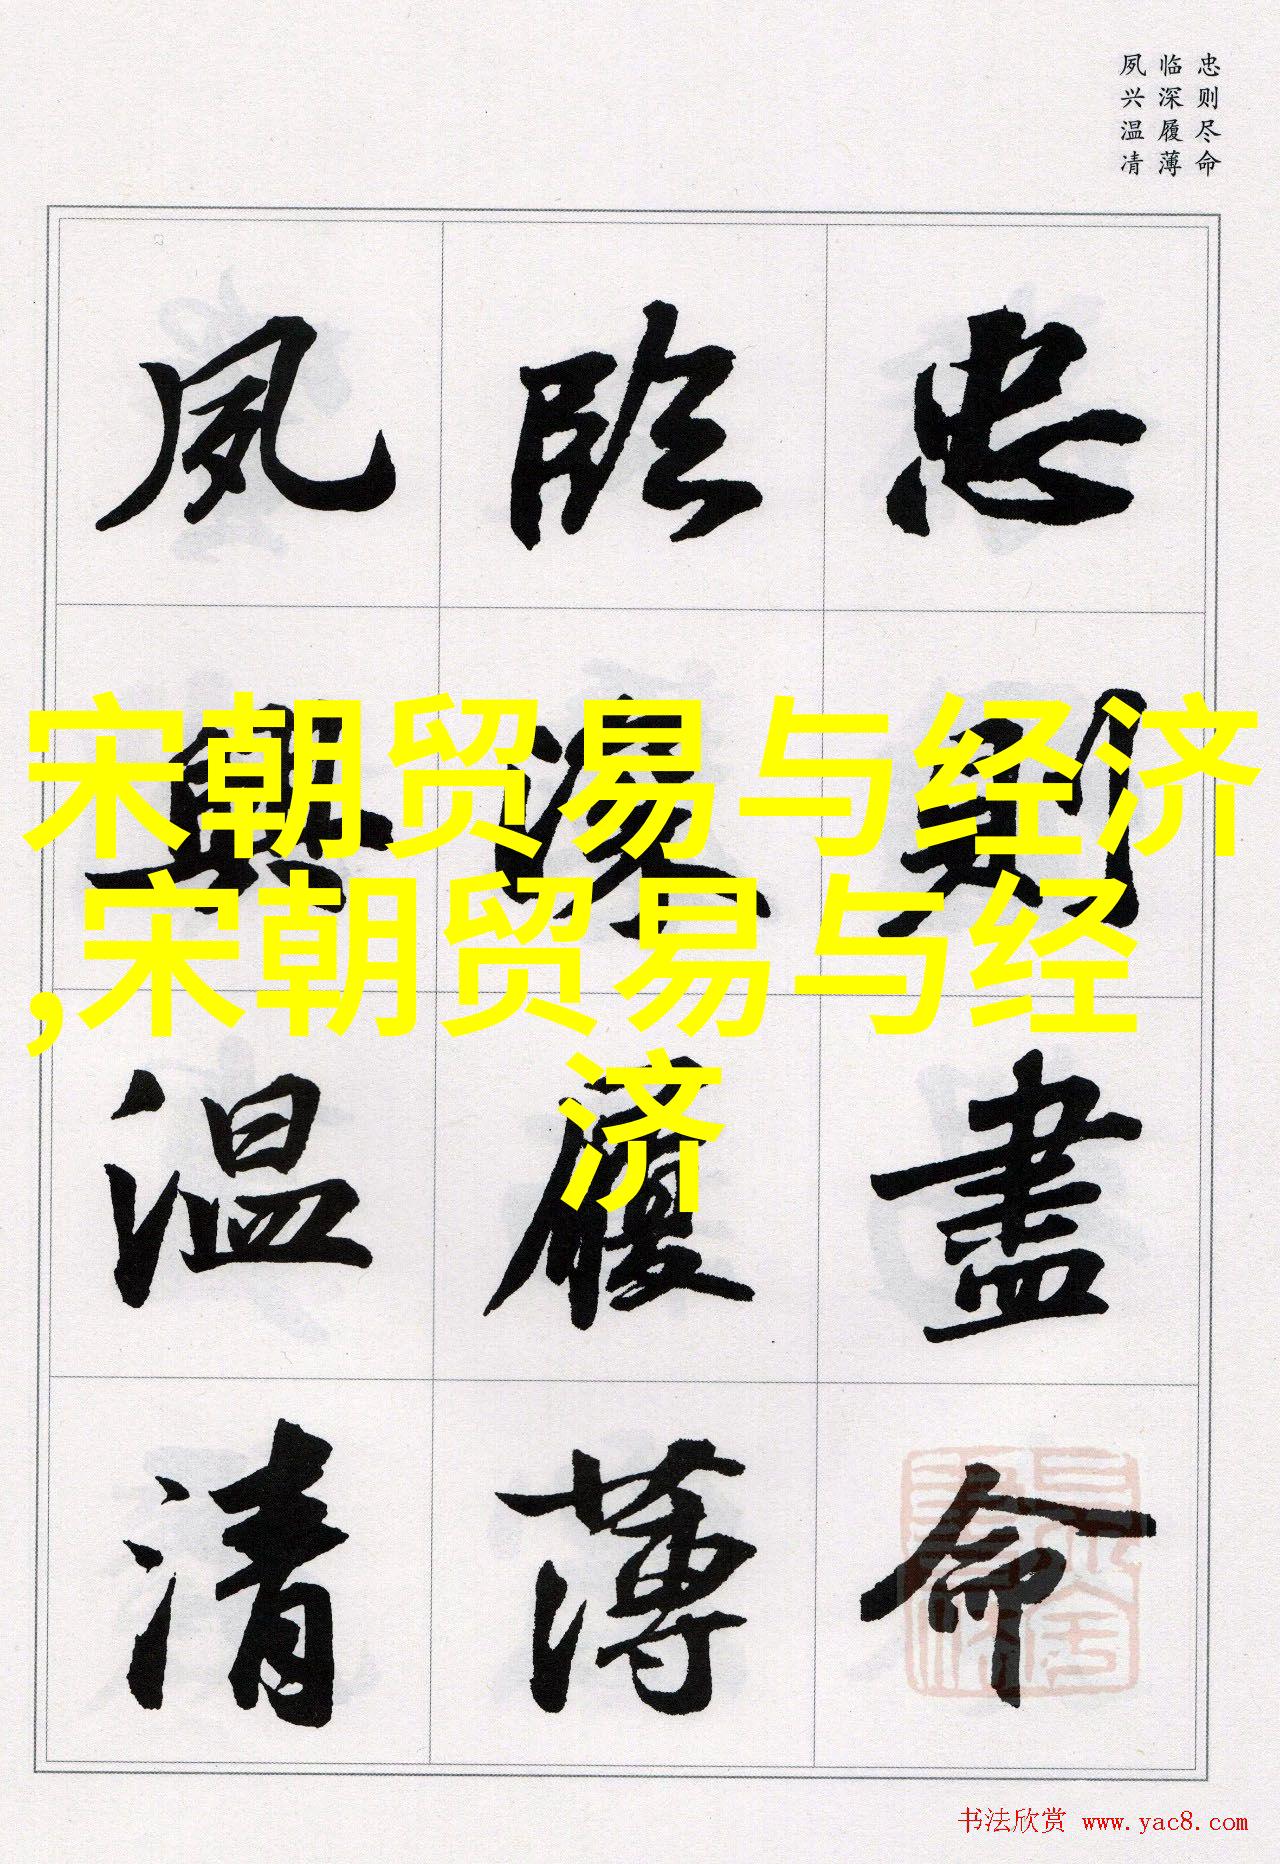 忠则尽命
临深履薄
夙兴温凊
忠則盡命
臨深履薄
夙興温清
宋朝贸易与经济
,宋朝贸易与经
济
书法欣赏 www.yac8.com